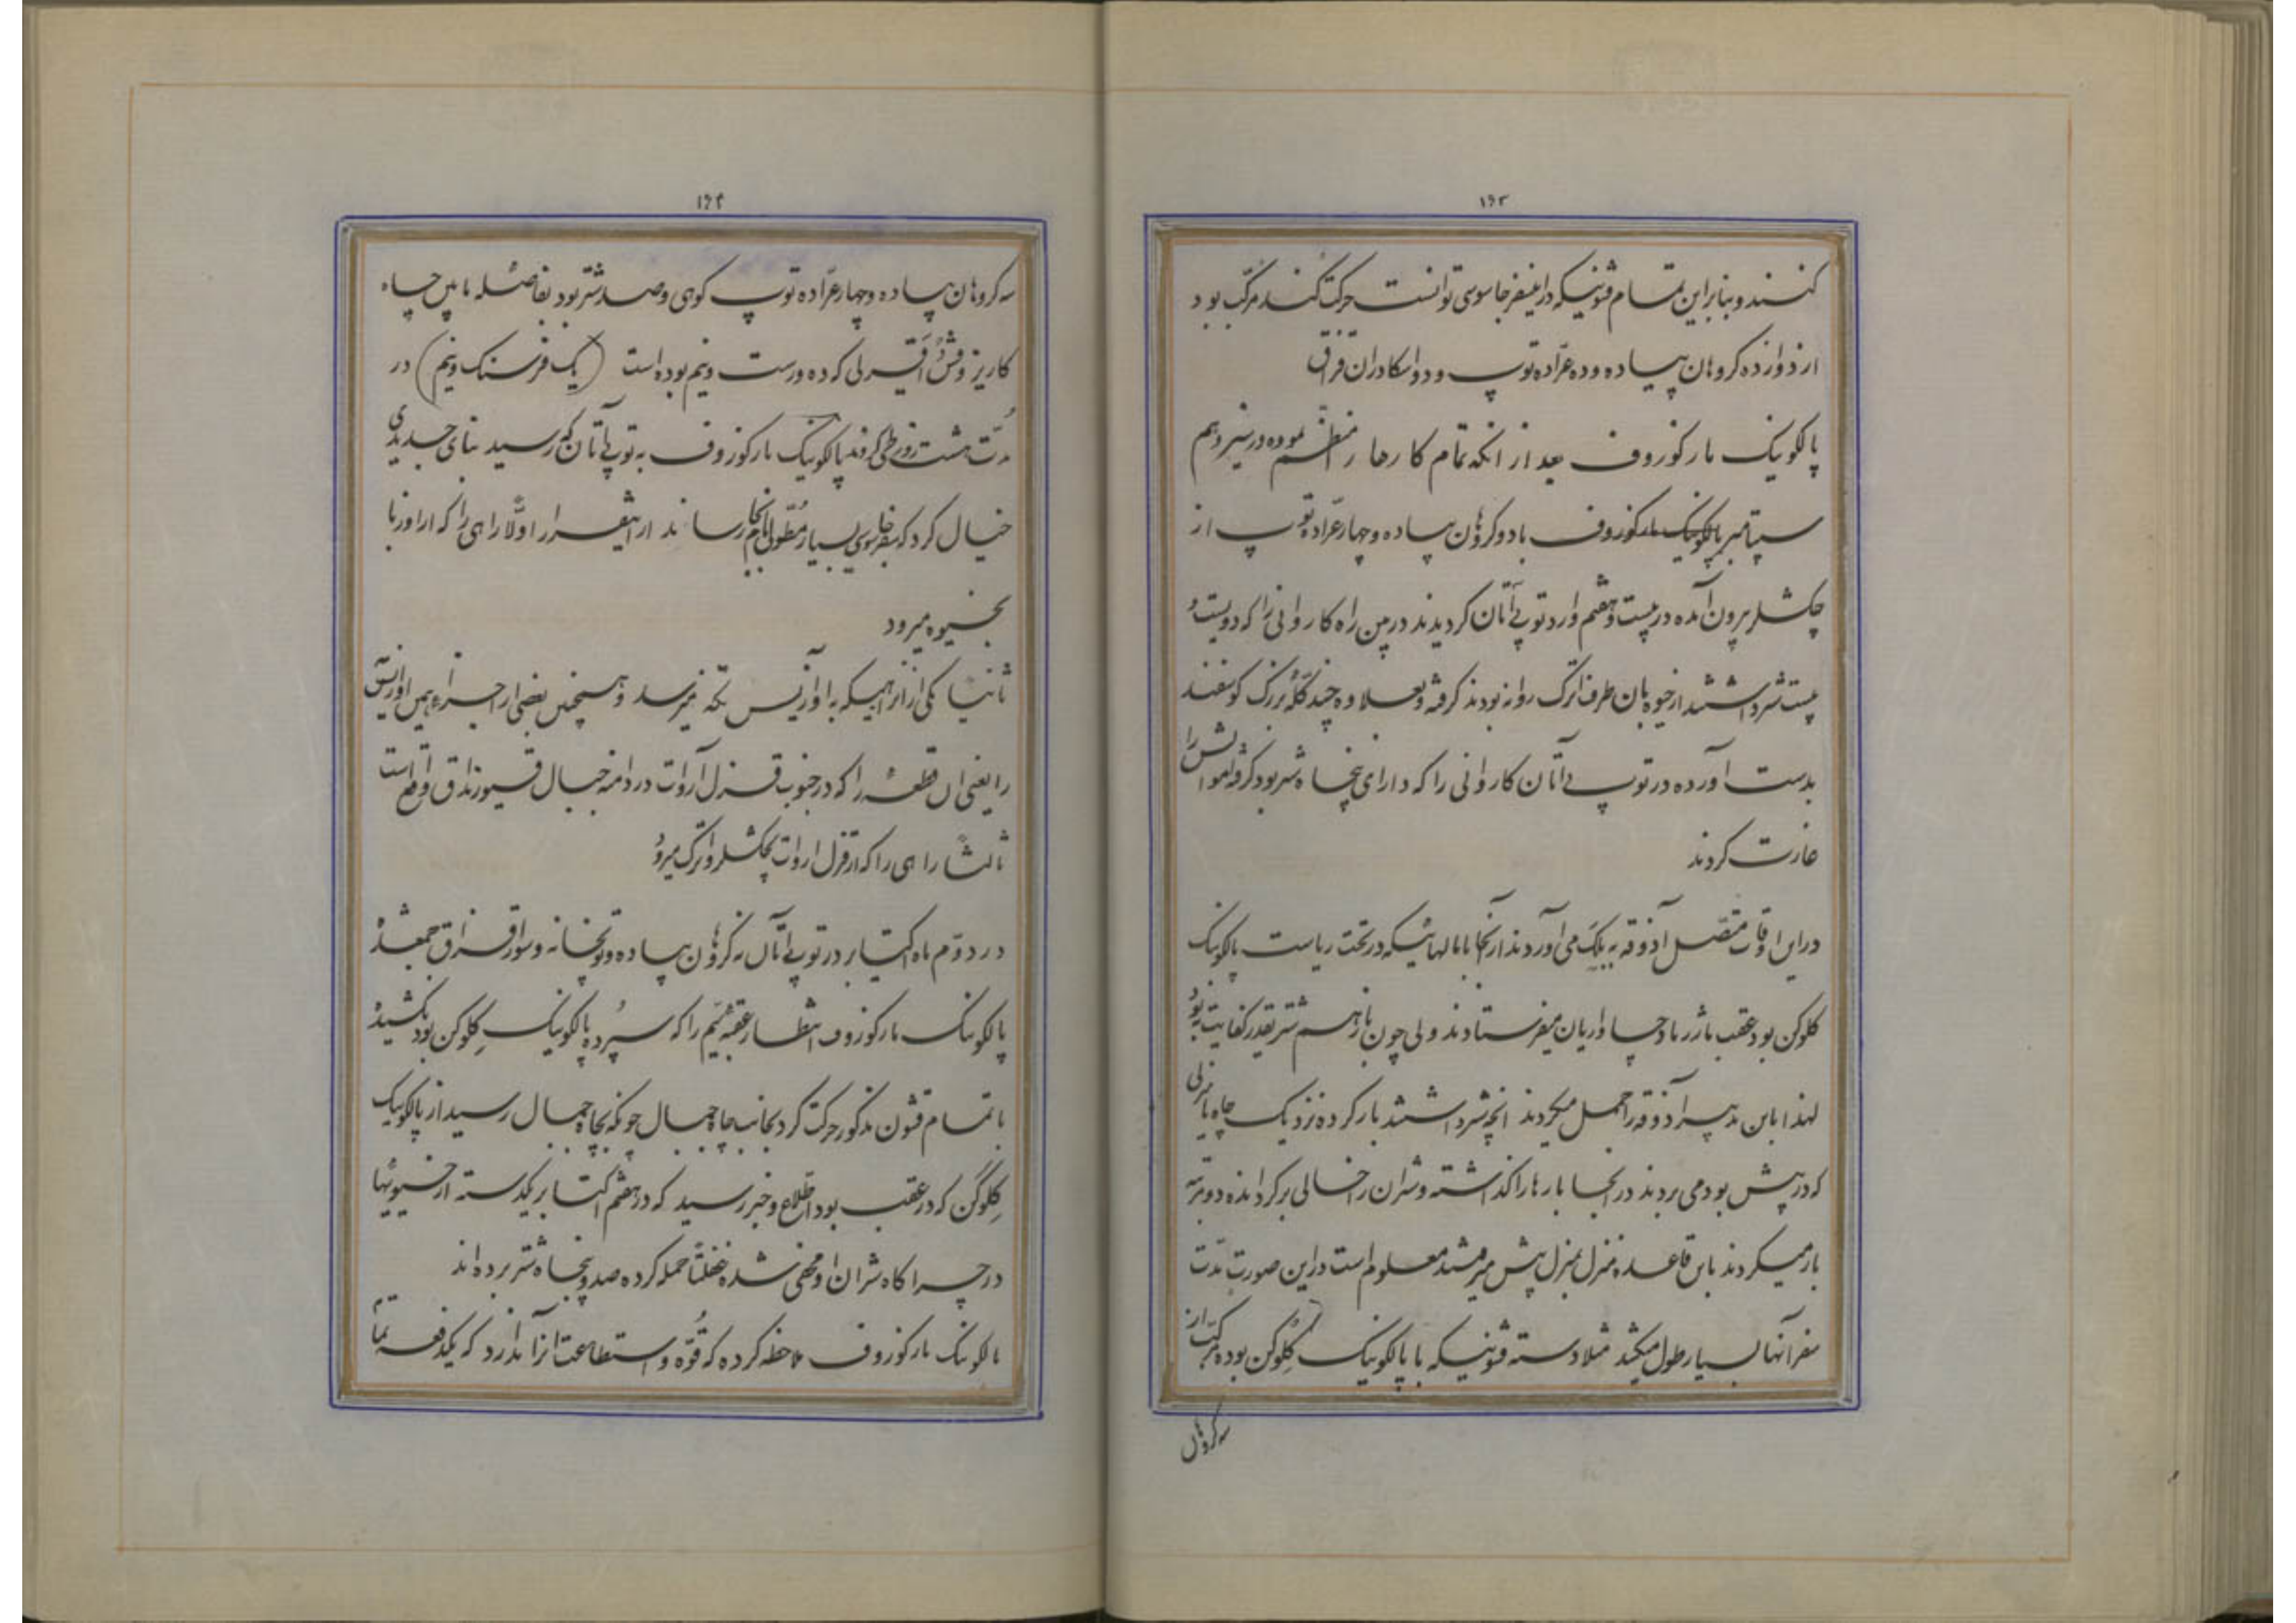 ۱۶۳
کنند و بنابراین تمام قشونیکه در اینسفر جاسوسی توانست حرکت کند مرکب بود
از دوازده کروهان پیاده و ده عراده توپ و دو اسکادران قزاق
پالکونیک مارکوزوف بعد از انکه تمام کارها را منظم نموده در سیزدهم
سپتامبر پالکونیک مارکوزوف با دو کروهان پیاده و چهار عراده توپ از
چکشلر بیرون آمده در بیست و هفتم وارد توپی آتان کردیدند در بین راه کاروانی را که دویست و
بیست شتر داشتند از خیوه بان طرف اترک روانه بودند کرفته و بعلاوه چند کله بزرک کوسفند
بدست آورده در توپی آتان کاروانی را که دارای پنجاه شتر بود کرفته اموالش را
غارت کردند
در این اوقات متصل آذوقه به بلک می آوردند از آنجا با مالهائیکه در تحت ریاست پالکونیک
کلوکن بود عقب باژرها و چاواریان میفرستادند ولی چون باز هم شتر بقدر کفایت نبود
لهذا باین تدبیر آذوقه را حمل میکردند انچه شتر داشتند بار کرده نزدیک چاه یا منزلی
که در پیش بود می بردند در انجا بارها را کذاشته و شتران را خالی برکردانده دو مرتبه
بار میکردند باین قاعده منزل بمنزل پیش میرفتند معلوم است در این صورت مدت
سفر آنها بسیار طول میکشد مثلا دسته قشونیکه با پالکونیک کلوکن بوده مرکب از
سه کروهان
۱۶۴
سه کروهان پیاده و چهار عراده توپ کوهی و صد شتر بود بفاصله مابین چاه
کاریز و قش اقیرلی که ده ورست و نیم بوده است (یک فرسنک و نیم) در
مدت هشت روز طی کردند پالکونیک مارکوزوف به توپی آتان که رسید بنای جدیدی
خیال کرد که سفر جاسوسی بسیار مطول بانجام رساند از اینقرار اولا راهی را که از اورتا
بخیوه میرود
ثانیا یکی از انراهیکه به اوازنیس تکه میرسد و همچنین بعضی از اجزاء همین
را یعنی ان قطعه را که در جنوب قزل آروات در دامنه جبال واقع است
ثالثا راهی را که از قزل اروات بچکشلر و اترک میرود
در دوم ماه اکتیابر در توپی آتان نه کروهان پیاده و توپخانه و سوار قزاق جمع شده
پالکونیک مارکوزوف انتظار عقبه را که سپرده پالکونیک کلوکن بود نکشیده
با تمام قشون مذکور حرکت کرد بجانب چاه جمال چونکه بچاه جمال رسید از پالکونیک
کلوکن که در عقب بود اطلاع و خبر رسید که در هفتم اکتیابر یکدسته از خیوئیها
در چراکاه شتران او مخفی شده غفلتا حمله کرده صد و پنجاه شتر برده اند
پالکونیک مارکوزوف ملاحظه کرده که قوه و استطاعت انرا ندارد که یکدفعه تمام